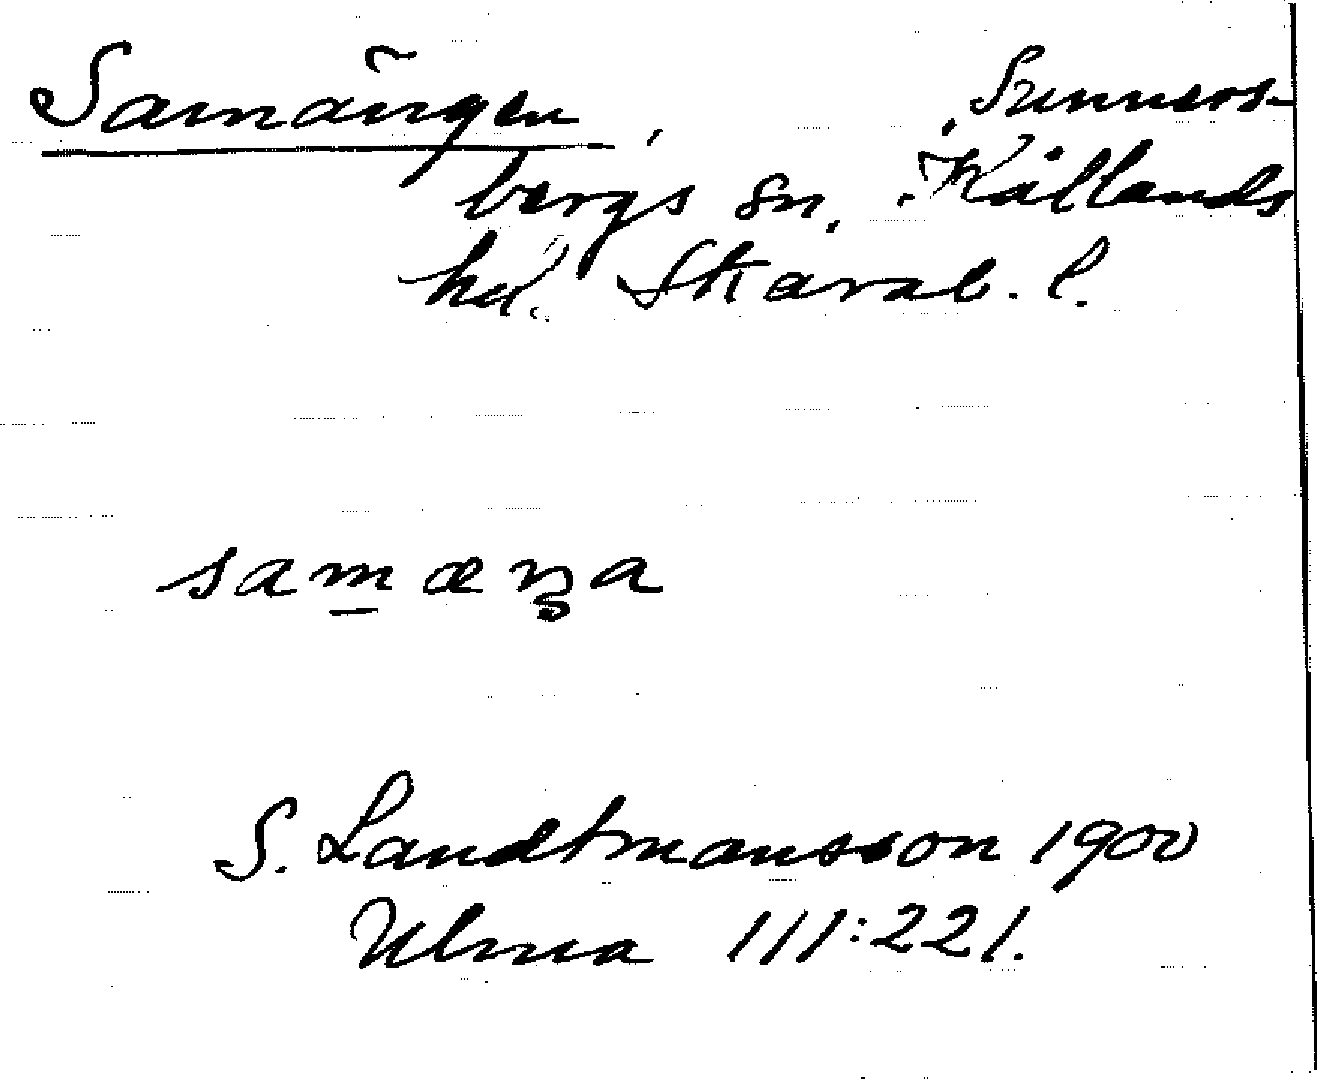 Samängen, Sunners-
bergs sn, Kållands
hd. Skarab. l.
samæŋa
S. Landtmansson 1900
Ulma 111:221.